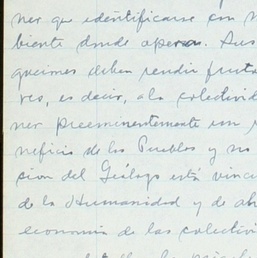 ner que identificarse con
biente donde operan. Aus
queiones deben rendir fruto
res, es decir, a la colectivid
ner preeminentemente un
neficio de los Pueblos y no
cion del Geólogo está vincu
de la Humanidad y de
economia de las colectivi